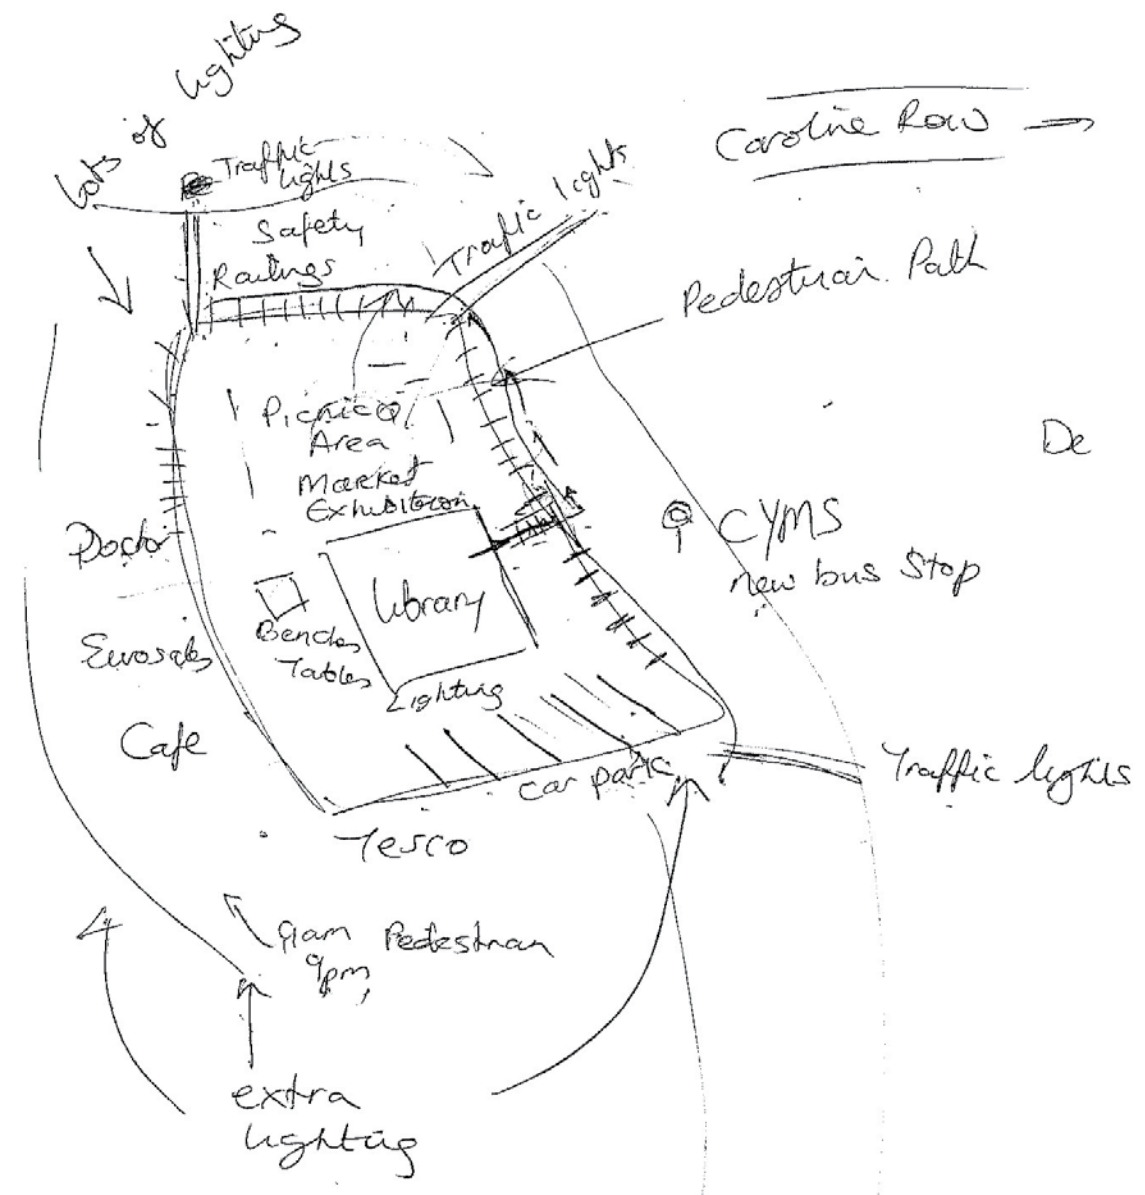 Lots of lighting
Traffic
lights
Safety
Railings
Traffic lights
Caroline Row
Pedestrian Path
Picnic
Area
Market
Exhibition
De
CYMS
new bus stop
Doctor
Library
Benches
Tables
Lighting
Cafe
car park
Traffic lights
Tesco
9am Pedestrian
9pm
extra
lighting